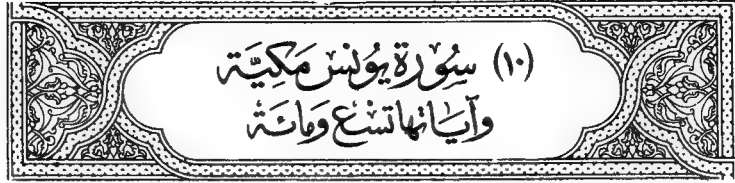 (١٠) سُوْرَةِ يُونْسَ مَكِيَّة
وَآيَانهَا تِسْع وَمائَة